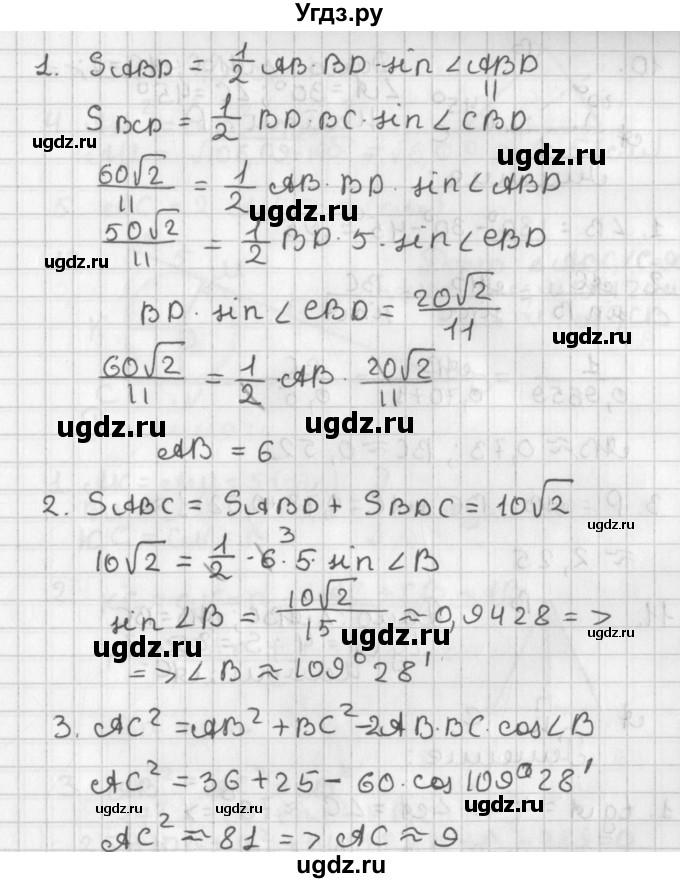 Угдз.ру
1. SABD = 1/2 AB·BD·sin∠ABD
||
SBCD = 1/2 BD·BC·sin∠CBD
ugdz.ru
ugdz.ru
60√2/11 = 1/2 AB·BD·sin∠ABD
ugdz.ru
50√2/11 = 1/2 BD·5·sin∠CBD
ugdz.ru
BD·sin∠CBD = 20√2/11
ugdz.ru
60√2/11 = 1/2·AB·20√2/11
ugdz.ru
ugdz.ru
AB = 6
2. SABC = SABD + SBDC = 10√2
ugdz.ru
10√2 = 1/2·6³·5·sin∠B
sin∠B = 10√2/15 ≈ 0,9428 =>
ugdz.ru
ugdz.ru
ugdz.ru
=> ∠B ≈ 109°28'
3. AC² = AB² + BC² - 2AB·BC·cos∠B
AC² = 36 + 25 - 60·cos109°28'
ugdz.ru
ugdz.ru
AC² ≈ 81 => AC ≈ 9
ugdz.ru